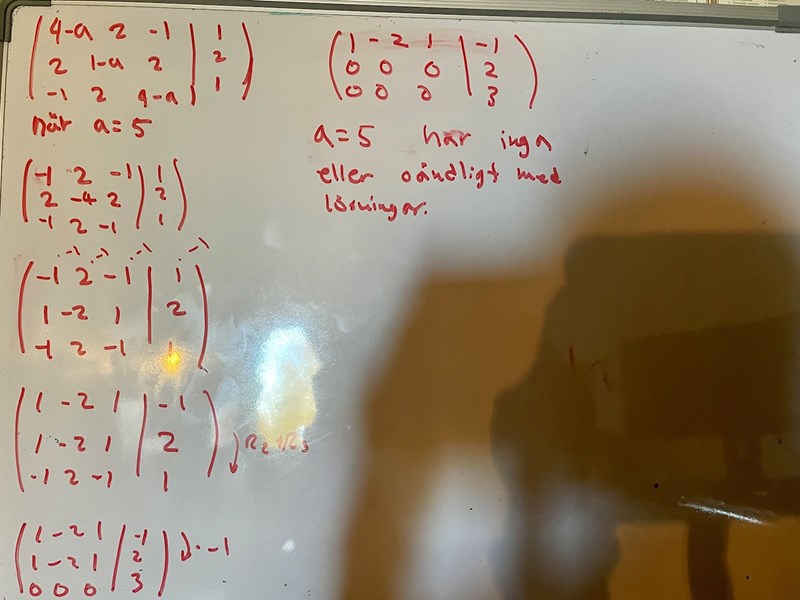 4-a 2 -1 | 1
2 1-a 2 | 2
-1 2 4-a | 1
när a=5
-1 2 -1 | 1
2 -4 2 | 2
-1 2 -1 | 1
·-1 ·-1 ·-1 ·-1
-1 2 -1 | 1
1 -2 1 | 2
-1 2 -1 | 1
1 -2 1 | -1
1 -2 1 | 2
-1 2 -1 | 1
R2+R3
1 -2 1 | -1
1 -2 1 | 2
0 0 0 | 3
·-1
1 -2 1 | -1
0 0 0 | 2
0 0 0 | 3
a=5 har inga
eller oändligt med
lösningar.